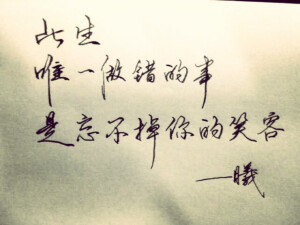 此生
唯一做错的事
是忘不掉你的笑容
一曦